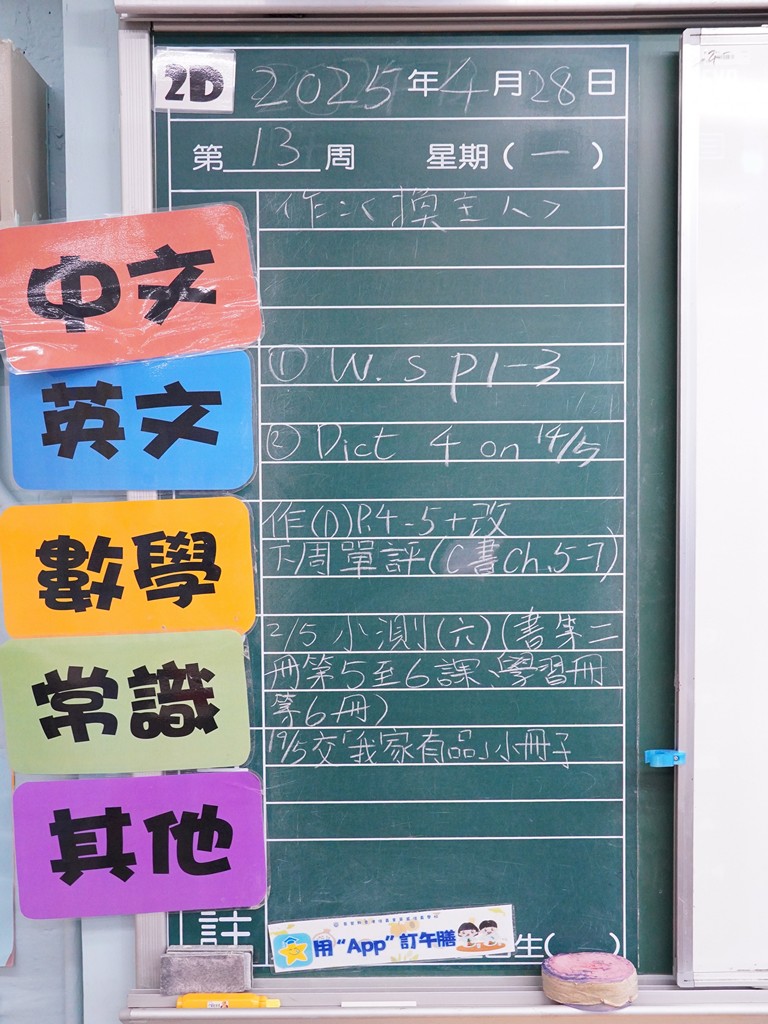 2D 2025年4月28日
第13周 星期(一)
作:〈換主人〉
中文
① W.S p1-3
英文
② Dict 4 on 14/5
作(D)P.4-5+改
數學
下周單評(C書Ch.5-7)
2/5 小測(六)(書第二
冊第5至6課、學習冊
常識
第6冊)
19/5交「我家有品」小冊子
其他
註
用“App”訂午膳
生( )